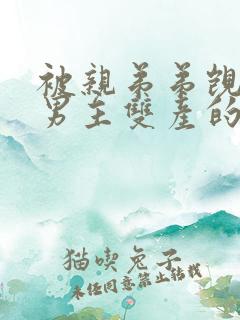 被親弟弟覬
男主雙產的
猫喫兔子
未经同意禁止转载